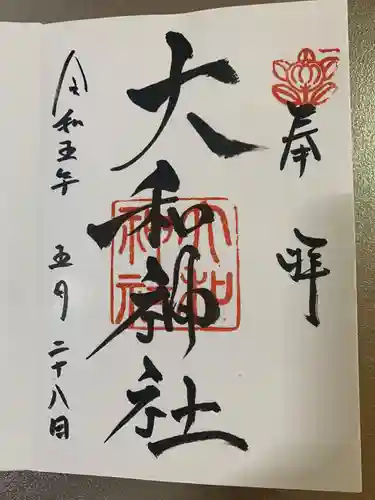 奉拝
大和神社
大和神社
令和五年 五月 二十八日